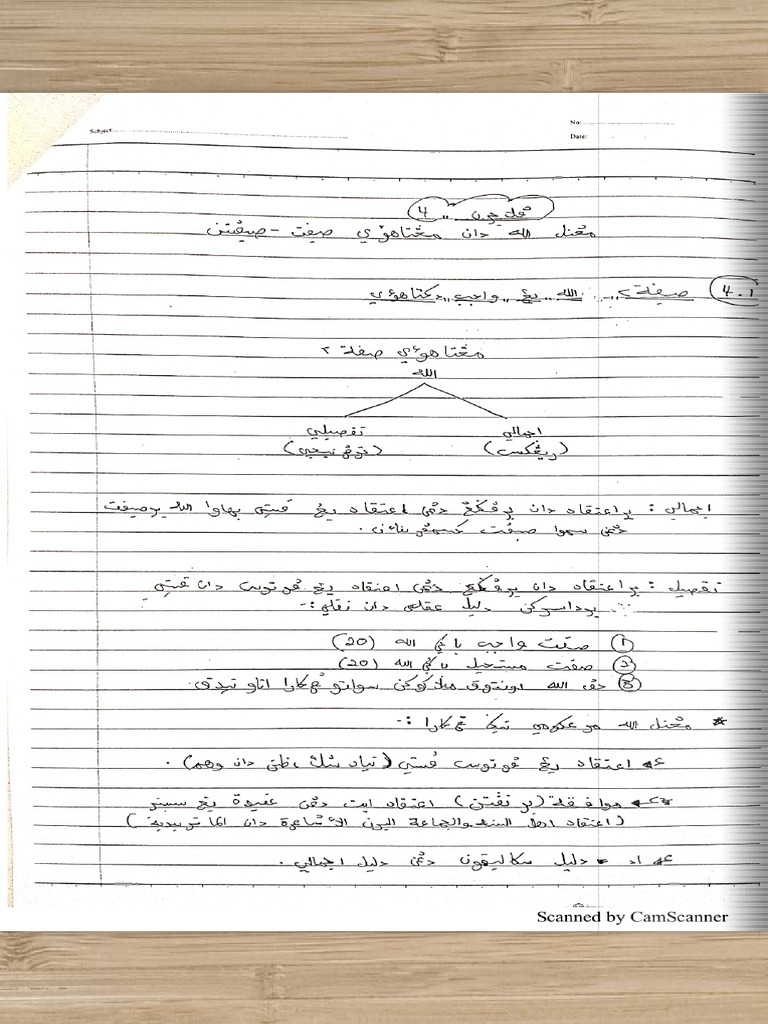 No:
Date:
Subject
ڤلاجرن 4
مڠنل الله دان مڠتاهوءي صيفت - صيفتن
4.1 صيفة٢ الله يڠ واجب دكتاهوءي
مڠتاهوءي صفة ٢
الله
اجمالي تفصيلي
(ريڠكس)
اجمالي : براعتقاد دان برڤݢڠ دڠن اعتقاد يڠ ڤستي بهاوا الله برصيفت
دڠن سموا صيفت كسمڤورناءن .
تفصيل : براعتقاد دان برڤݢڠ دڠن اعتقاد يڠ ڤوتوس دان ڤستي
برداسركن دليل عقلي دان نقلي :-
① صفت واجب باݢي الله (20)
② صفت مستحيل باݢي الله (20)
③ حق الله اونتوق ملاكوكن سواتو ڤركارا اتاو تيدق.
* مڠنل الله تيݢ ڤركارا :-
اعتقاد يڠ ڤوتوس ڤستي (تياد شك ، ظن دان وهم) .
موافقة (برتڤتن) اعتقاد ايت دڠن عقيدة يڠ سبنر
(اعتقاد اهل السنة والجماعة الأشاعرة دان الماتوريدية)
اد دليل سكاليڤون دڠن دليل اجمالي .
Scanned by CamScanner